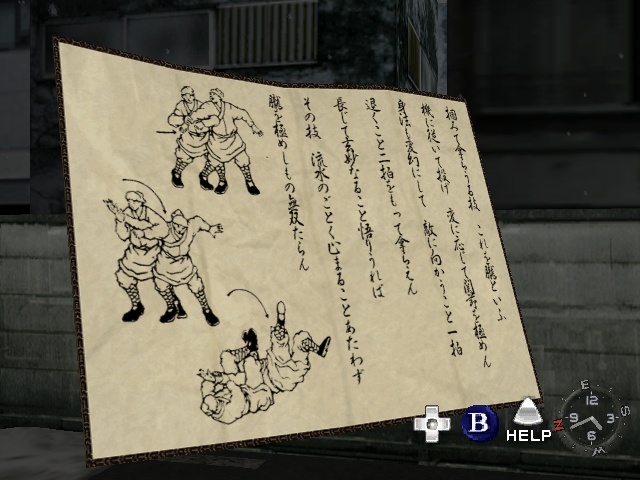 掴みて 技 これを朧といふ
機に従いて投げ 変に応じて関節を極めん
身法 変幻にして 敵に向かうこと一拍
退くこと二拍をもって
長じて玄妙なること悟りうれば
その技 流水のごとく止まることあたわず
朧を極めしもの無双たらん
B
HELP
E
S
W
N
12
3
6
9